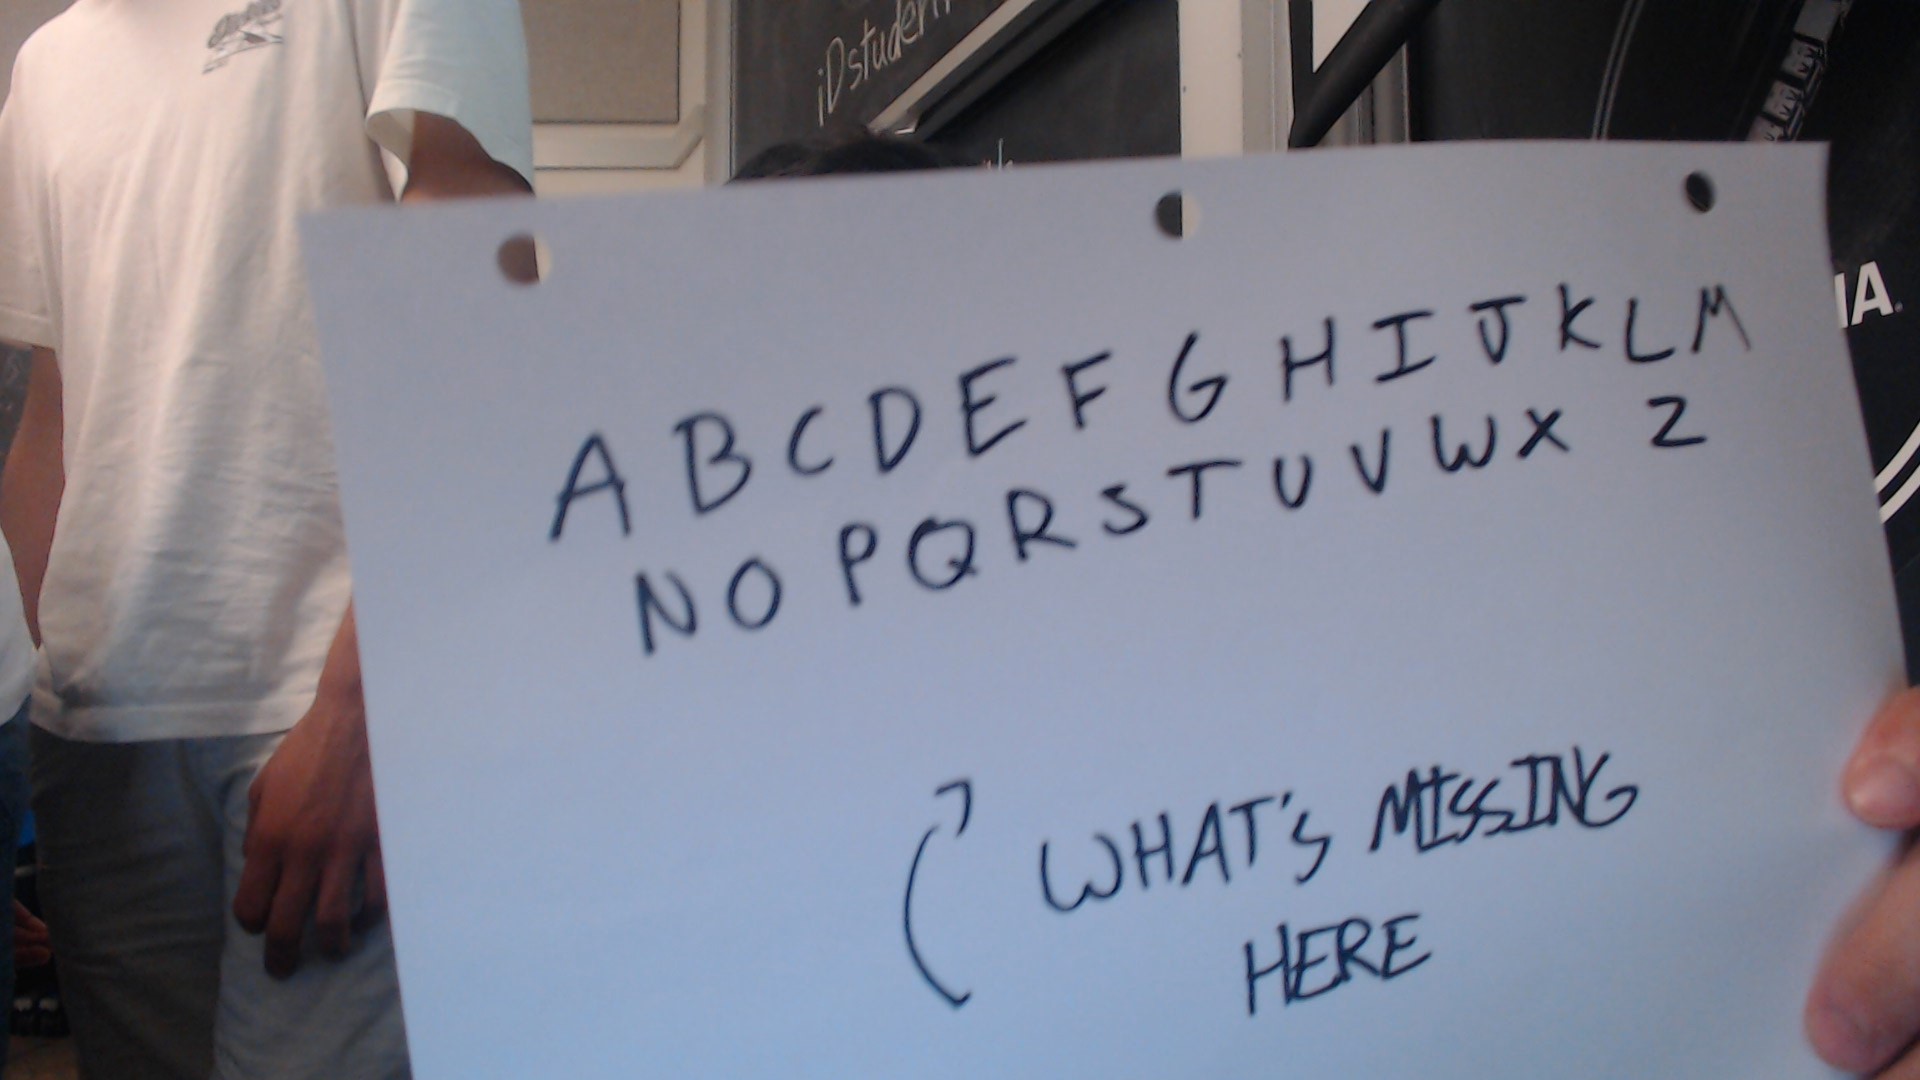 iDstuden
A B C D E F G H I J K L M
N O P Q R S T U V W X Z
WHAT'S MISSING
HERE
IA.